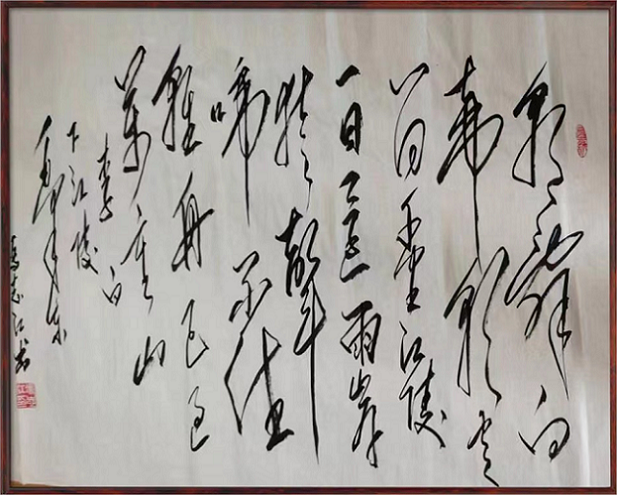 朝辞白
帝彩云
间千里江陵
一日还两岸
猿聲
啼不住
輕舟已过
萬重山
李白
下江陵
毛泽东
志江书